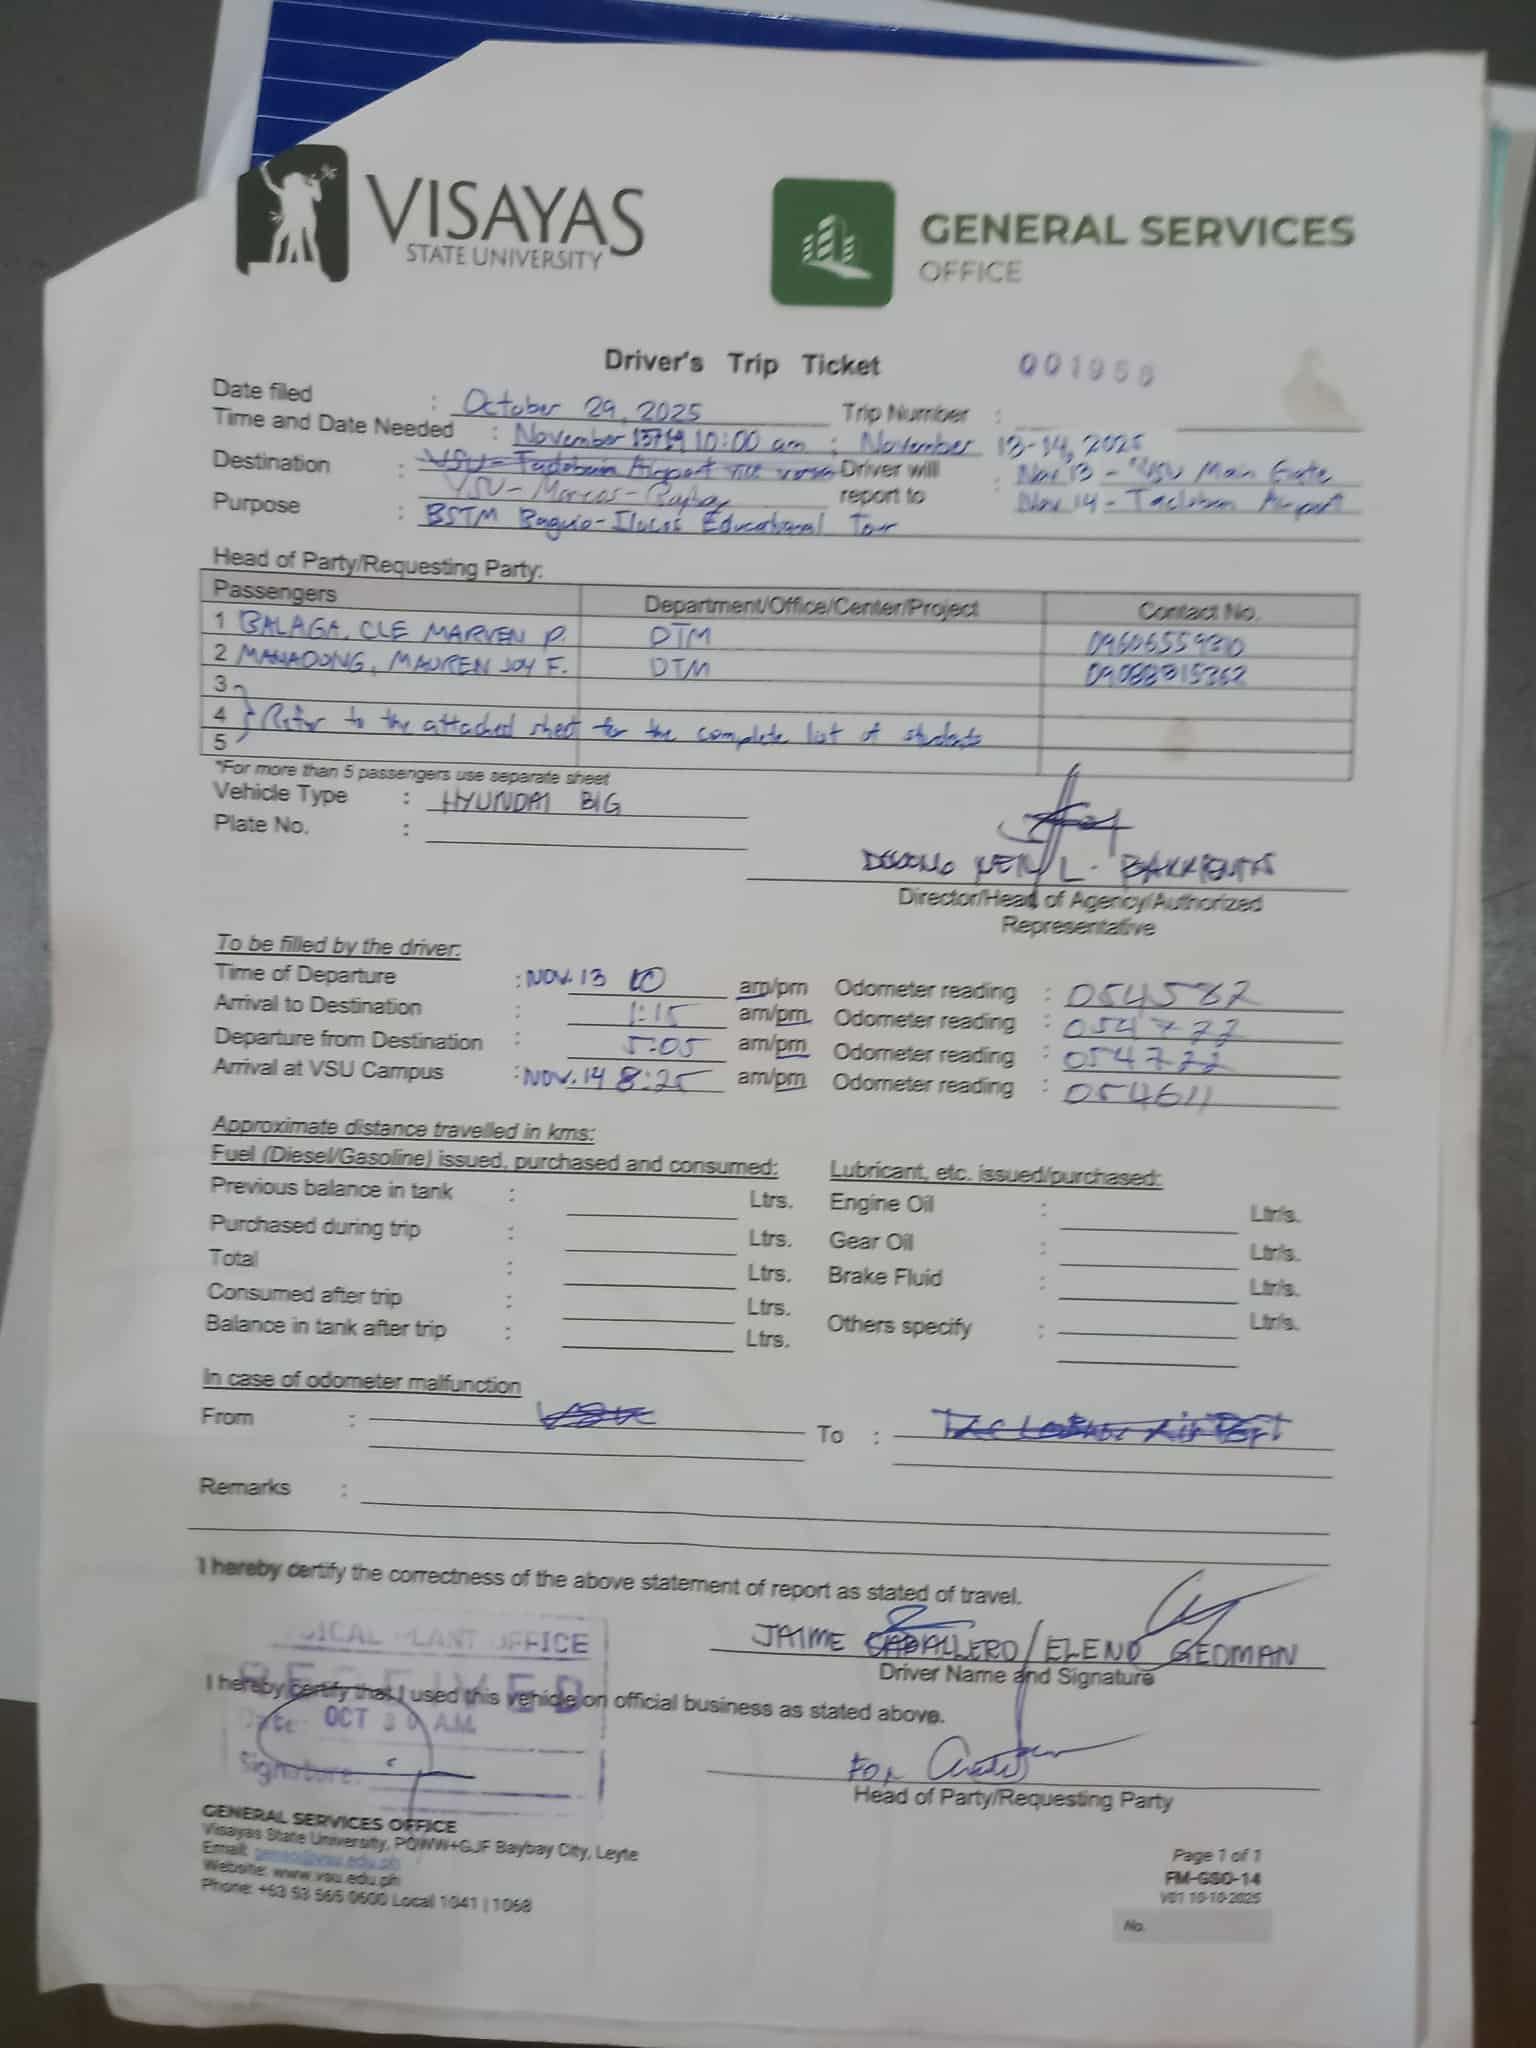 VISAYAS
STATE UNIVERSITY
GENERAL SERVICES
OFFICE
Driver's Trip Ticket
Date filed : October 29, 2025 Trip Number :
Time and Date Needed : November 10:00 am ; November 13-14, 2025
Destination : VSU - Tacloban Airport vice versa Driver will report to : Nov 13 - VSU Main Gate
VSU - Marcos - Nov 14 - Tacloban Airport
Purpose : BSTM Baguio-Ilocos Educational Tour
Head of Party/Requesting Party:
Passengers Department/Office/Center/Project Contact No.
1 BALAGA, CLE MARVEN P. DTM
2 MANADONG, MAUREN JOY F. DTM
3
4 Refer to the attached sheet for the complete list of students
5
*For more than 5 passengers use separate sheet
Vehicle Type : HYUNDAI BIG
Plate No. :
L.
Director/Head of Agency/Authorized
Representative
To be filled by the driver:
Time of Departure : NOV. 13 10 am/pm Odometer reading : 054582
Arrival to Destination : 1:15 am/pm Odometer reading :
Departure from Destination : 5:05 am/pm Odometer reading :
Arrival at VSU Campus : NOV. 14 8:25 am/pm Odometer reading : 054611
Approximate distance travelled in kms:
Fuel (Diesel/Gasoline) issued, purchased and consumed: Lubricant, etc. issued/purchased:
Previous balance in tank : Ltrs. Engine Oil : Ltr/s.
Purchased during trip : Ltrs. Gear Oil : Ltr/s.
Total : Ltrs. Brake Fluid : Ltr/s.
Consumed after trip : Ltrs. Others specify : Ltr/s.
Balance in tank after trip : Ltrs.
In case of odometer malfunction
From : To : Tacloban Air Port
Remarks :
I hereby certify the correctness of the above statement of report as stated of travel.
JAIME CABALLERO/ELENO GEDMAN
Driver Name and Signature
PLANT OFFICE
RECEIVED
Date: OCT 30 A.M.
Signature:
I hereby certify that I used this vehicle on official business as stated above.
For
Head of Party/Requesting Party
GENERAL SERVICES OFFICE
Visayas State University, PQWW+GJF Baybay City, Leyte
Email:
Website: www.vsu.edu.ph
Phone: +63 53 565 0600 Local 1041 | 1068
Page 1 of 1
FM-GSO-14
V01 10-10-2025
No.